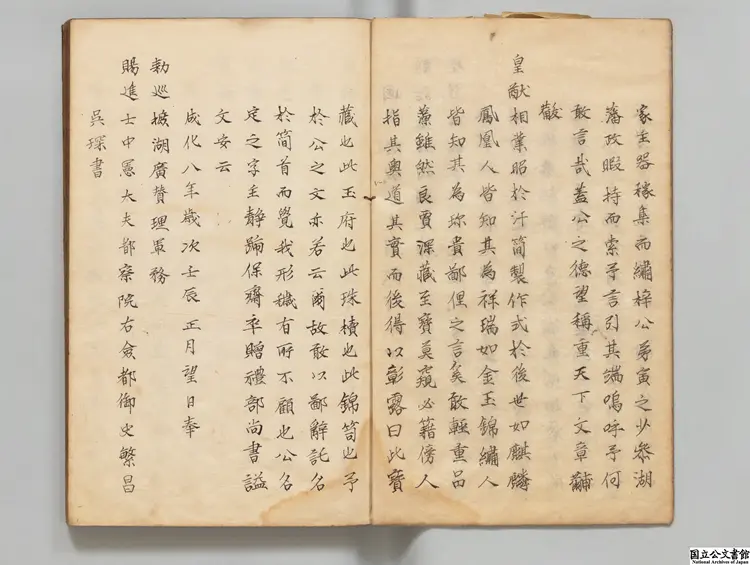 家主器稼集而繡梓公弟寅之少叅湖
藩政暇持而索予言引其端嗚呼予何
敢言哉蓋公之德望稱重天下文章黼
黻
皇猷相業昭於汗簡製作式於後世如麒麟
鳳凰人皆知其為祥瑞如金玉錦繡人
皆知其為珎貴鄙俚之言奚敢輕重品
藻雖然良賈深藏至寶莫窺必籍傍人
指其奧道其實而後得以彰露曰此寶
藏也此玉府也此珠櫝也此錦笥也予
於公之文亦若云爾故敢以鄙辭託名
於簡首而覺我形穢有所不顧也公名
定之字主靜號保齋卒贈禮部尚書謚
文安云
成化八年歲次壬辰正月望日奉
勑巡撫湖廣贊理軍務
賜進士中憲大夫都察院右僉都御史繁昌
吳琛書
国立公文書館
National Archives of Japan